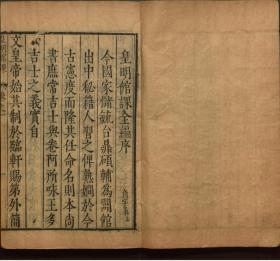 皇明館課全編序
今國家儲毓台鼎碩輔為開館
出中秘籍人習之俾熟嫺於今
古憲度而隆其任命名則本尚
書庶常吉士與卷阿所咏王多
吉士之義實自
文皇帝始其制於臨軒賜第外簡